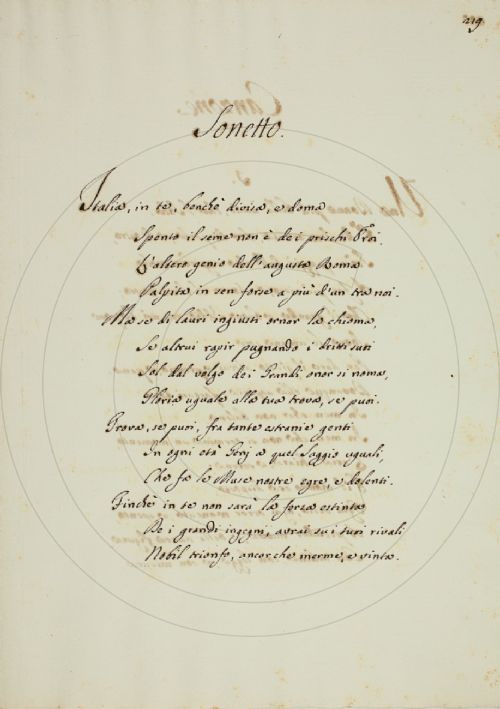 219
Sonetto.
Italia, in te, benchè divisa, e doma
Spento il seme non è dei prischi Eroi,
L'altero genio dell'augusta Roma
Palpita in sen forse a più d'un tra noi.
Ma se di lauri ingiusti ornar la chioma,
Se altrui rapir pugnando i dritti suoi
Sol dal volgo dei Grandi onor si noma,
Gloria uguale alla tua trova, se puoi.
Trova, se puoi, fra tante estranie genti
In ogni età Genj a quel Saggio uguali,
Che fa le Muse nostre egre, e dolenti.
Finchè in te non sarà la forza estinta
De i grandi ingegni, avrai su i tuoi rivali
Nobil trionfo, ancor che inerme, e vinta.